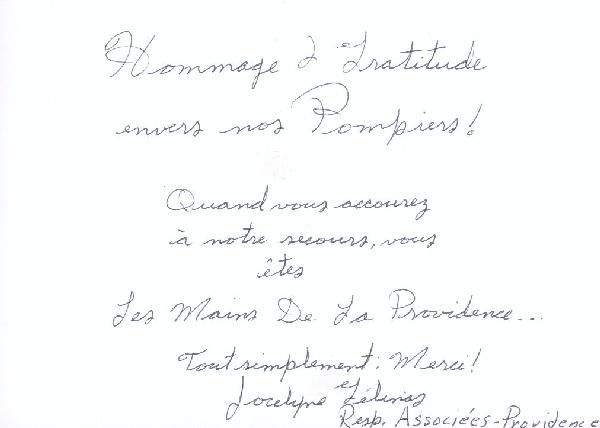 Hommage & Gratitude
envers nos Pompiers!
Quand vous accourez
à notre secours, vous
êtes
Les Mains De La Providence...
Tout simplement: Merci!
Jocelyne Gélinas
Resp. Associées-Providence